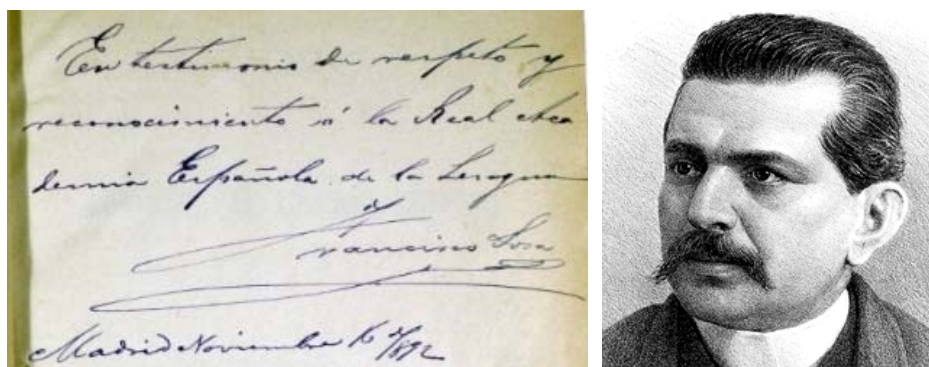 En testimonio de respeto y
reconocimiento á la Real Aca
demia Española de la Lengua
Francisco Sosa
Madrid Noviembre 16 de 1892